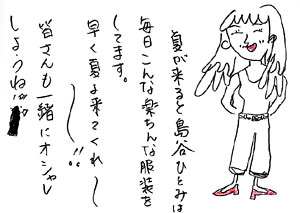 夏が来ると島谷ひとみは
毎日こんな楽ちんな服装を
してます。
早く夏よ来てくれ〜
〜!!
皆さんも一緒にオシャレ
しようね!!